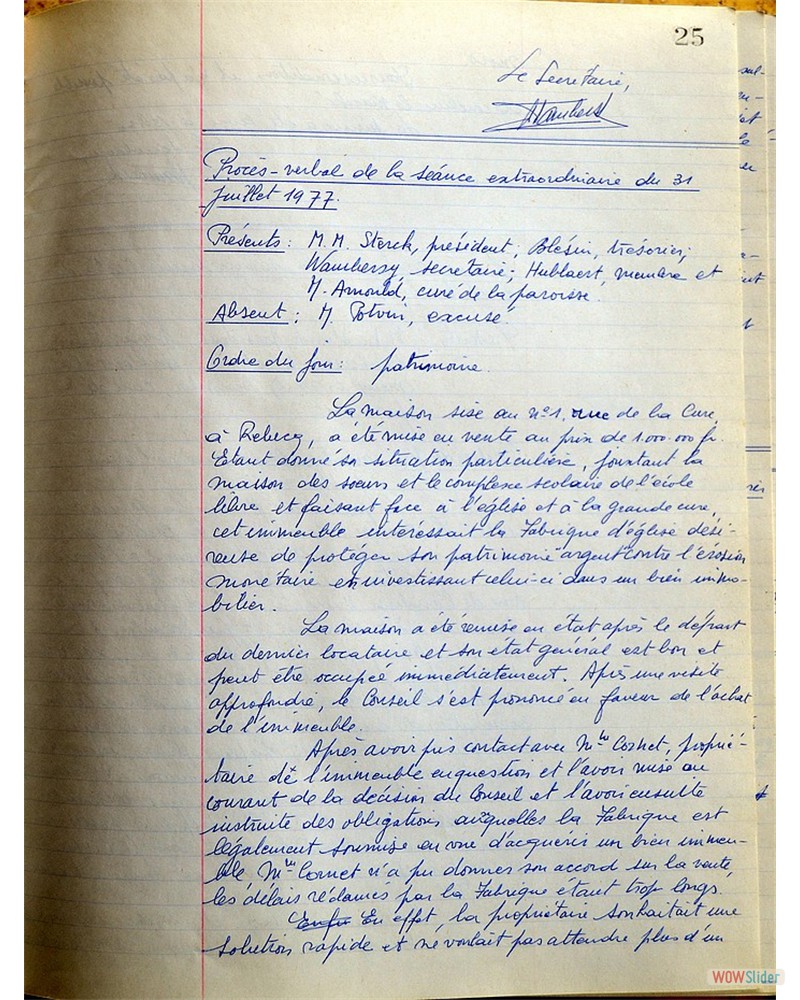 25
Le Secrétaire,
Procès-verbal de la séance extraordinaire du 31
Juillet 1977.
Présents : M.M. Sterck, président ; Blésin, trésorier ;
Wambersy, secrétaire ; Hublaert, membre et
M. Arnould, curé de la paroisse.
Absent : M. Potvin, excusé.
Ordre du jour : patrimoine.
La maison sise au n° 1, rue de la Cure,
à Rebecq, a été mise en vente au prix de 1.000.000 fr.
Etant donné sa situation particulière, joustant la
maison des soeurs et le complexe scolaire de l'école
libre et faisant face à l'église et à la grande cure,
cet immeuble intéressait la Fabrique d'église dési-
reuse de protéger son patrimoine "argent" contre l'érosion
monétaire en investissant celui-ci dans un bien immo-
bilier.
La maison a été remise en état après le départ
du dernier locataire et son état général est bon et
peut être occupée immédiatement. Après une visite
approfondie, le Conseil s'est prononcé en faveur de l'achat
de l'immeuble.
Après avoir pris contact avec Mlle Cornet, proprié-
taire de l'immeuble en question et l'avoir mise au
courant de la décision du Conseil et l'avoir ensuite
instruite des obligations auxquelles la Fabrique est
légalement soumise en vue d'acquérir un bien immeu-
ble, Mlle Cornet n'a pu donner son accord sur la vente,
les délais réclamés par la Fabrique étant trop longs.
Enfin En effet, la propriétaire souhaitait une
solution rapide et ne voulait pas attendre plus d'un
WOWSlider